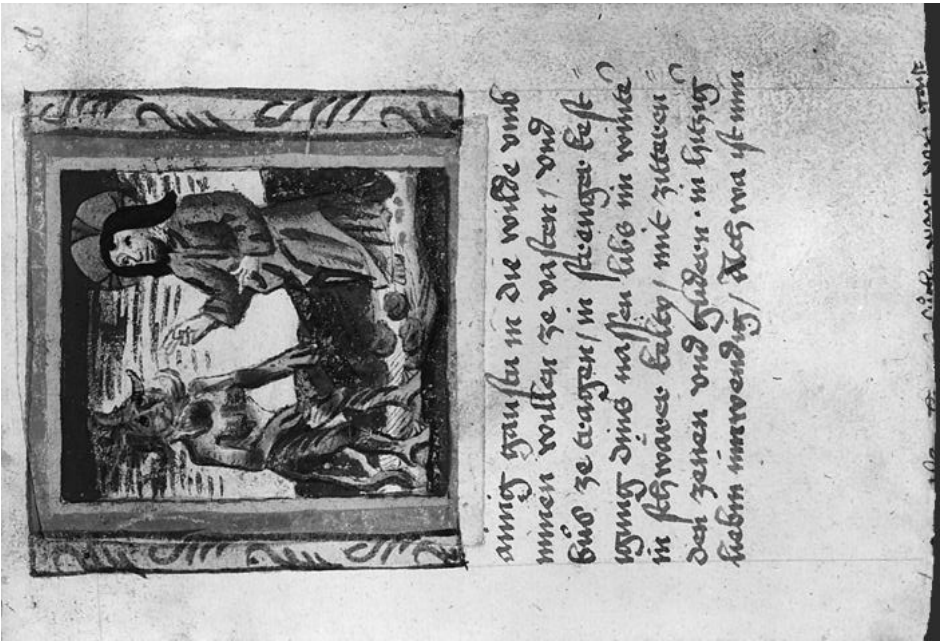 ainig gaisten in die wilde vmb
minen willen ze vasten / vnd
büß ze tragen / in strenger kest=
igung dins nassen libs in winter
in schwärer kelten / mit zitteren
den zenen vnd glidern · in hitzig
lieben innwendig / Ach wa ist nun